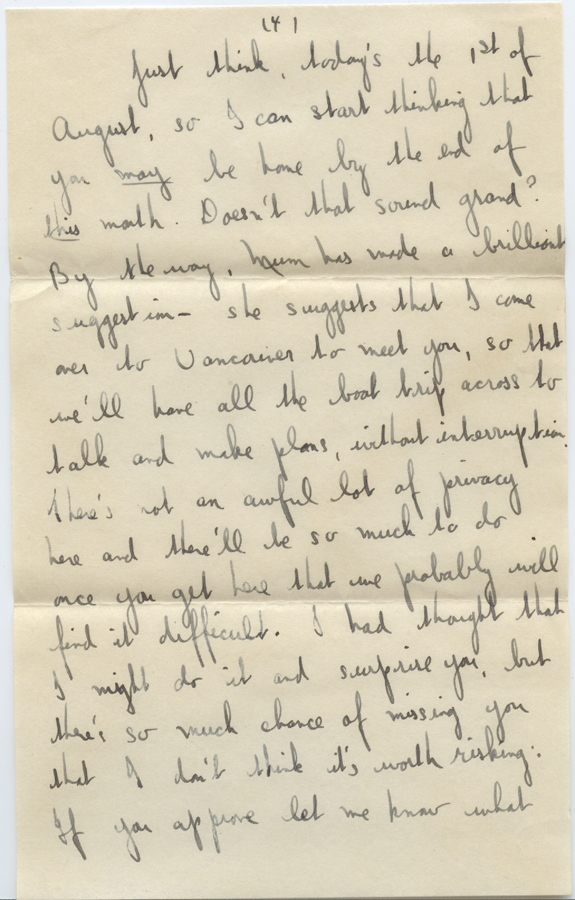 (4)
Just think, today's the 1st of
August, so I can start thinking that
you may be home by the end of
this month. Doesn't that sound grand?
By the way, Mum has made a brilliant
suggestion - she suggests that I come
over to Vancouver to meet you, so that
we'll have all the boat trip across to
talk and make plans, without interruption.
There's not an awful lot of privacy
here and there'll be so much to do
once you get here that we probably will
find it difficult. I had thought that
I might do it and surprise you, but
there's so much chance of missing you
that I don't think it's worth risking.
If you approve let me know what